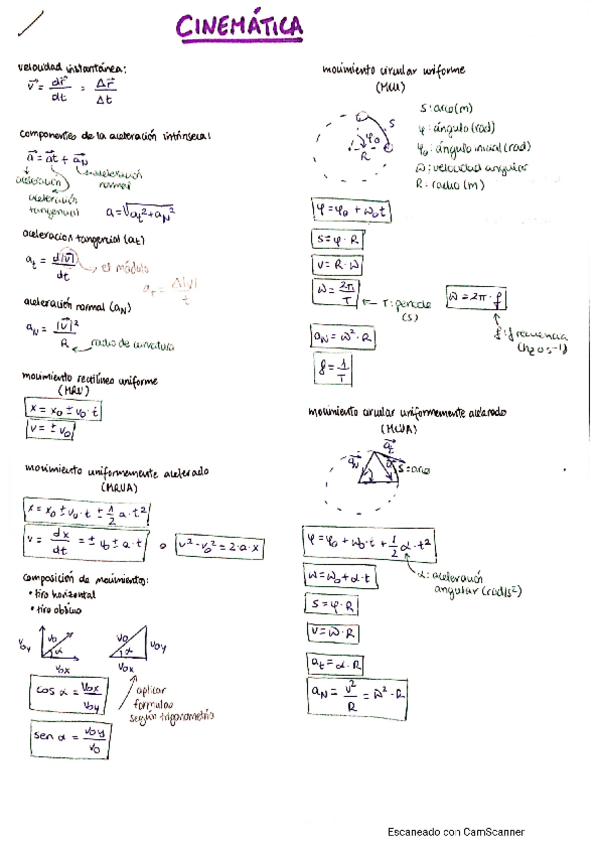 CINEMÁTICA
velocidad instantánea:
v⃗ = dr⃗/dt = Δr⃗/Δt
componentes de la aceleración intrínseca:
a⃗ = a⃗t + a⃗N
aceleración
aceleración normal
aceleración tangencial
a = √(at² + aN²)
aceleración tangencial (at)
at = d|v⃗|/dt → el módulo
at = Δ|v|/t
aceleración normal (aN)
aN = |v⃗|²/R
radio de curvatura
movimiento rectilíneo uniforme
(MRU)
x = x0 ± v0 · t
v = ± v0
movimiento uniformemente acelerado
(MRUA)
x = x0 ± v0 · t ± 1/2 a · t²
v = dx/dt = ± v0 ± a · t o v² - v0² = 2 · a · x
composición de movimientos:
• tiro horizontal
• tiro oblicuo
v0y v0 α v0x
v0 v0y α v0x
cos α = v0x/v0y
sen α = v0y/v0
aplicar
formulas
según trigonometría
movimiento circular uniforme
(MCU)
S φ0 R
S: arco (m)
φ: ángulo (rad)
φ0: ángulo inicial (rad)
ω: velocidad angular
R: radio (m)
φ = φ0 + ω0 t
s = φ · R
v = R · ω
ω = 2π/T ← T: periodo (s)
ω = 2π · f
f: frecuencia
(hz o s-1)
aN = ω² · R
f = 1/T
movimiento circular uniformemente acelerado
(MCUA)
a⃗t
a⃗N
S = arco
φ = φ0 + ω0 · t + 1/2 α · t²
α: aceleración
angular (rad/s²)
ω = ω0 + α · t
s = φ · R
v = ω · R
at = α · R
aN = v²/R = ω² · R
Escaneado con CamScanner